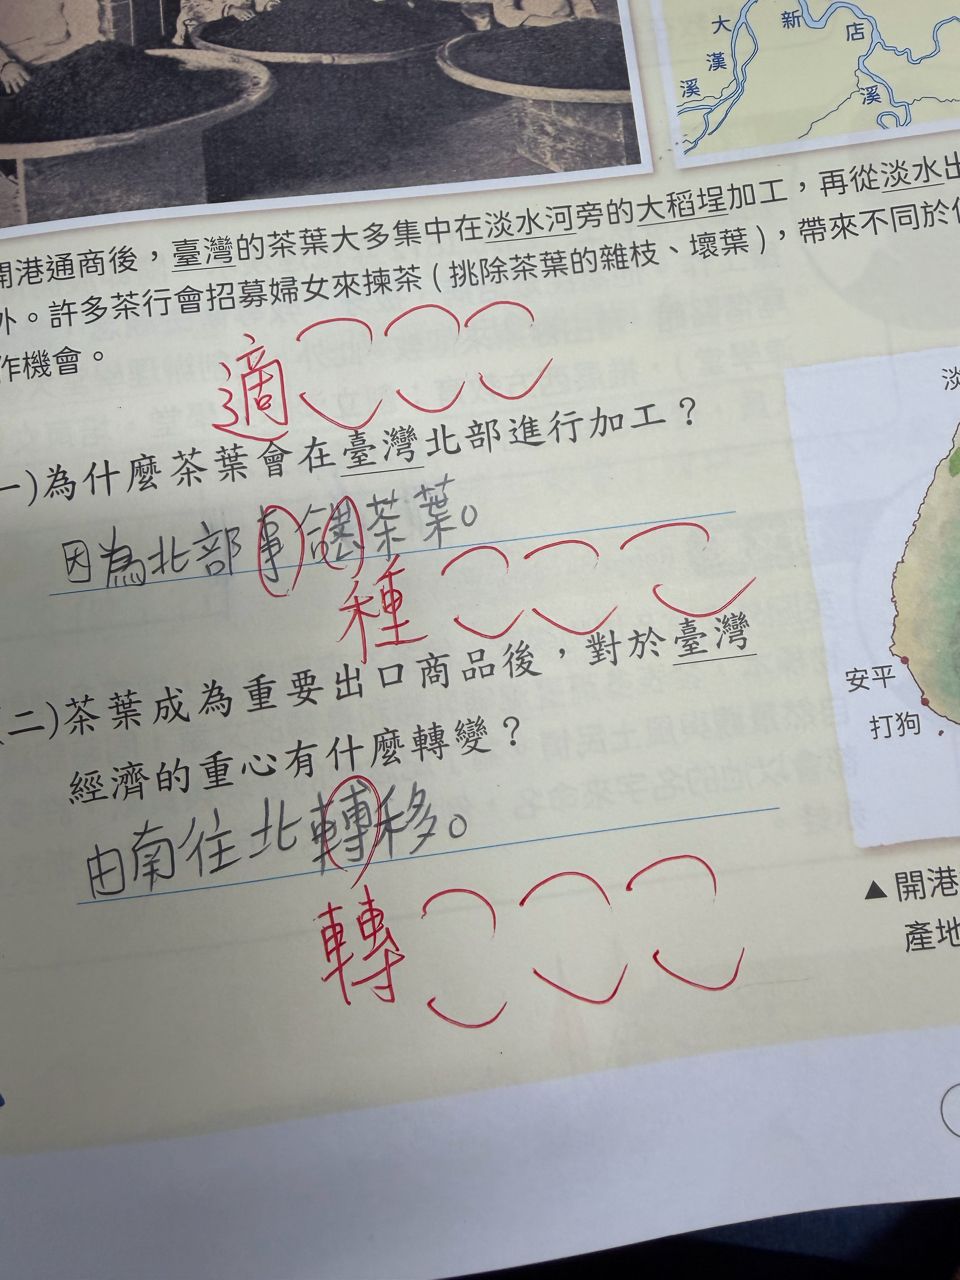 大漢溪
新店溪
開港通商後，臺灣的茶葉大多集中在淡水河旁的大稻埕加工，再從淡水出
外。許多茶行會招募婦女來揀茶(挑除茶葉的雜枝、壞葉)，帶來不同於
作機會。
適
淡
一)為什麼茶葉會在臺灣北部進行加工？
因為北部 茶葉。
種
(二)茶葉成為重要出口商品後，對於臺灣
經濟的重心有什麼轉變？
安平
打狗
由南往北轉移。
轉
▲開港
產地